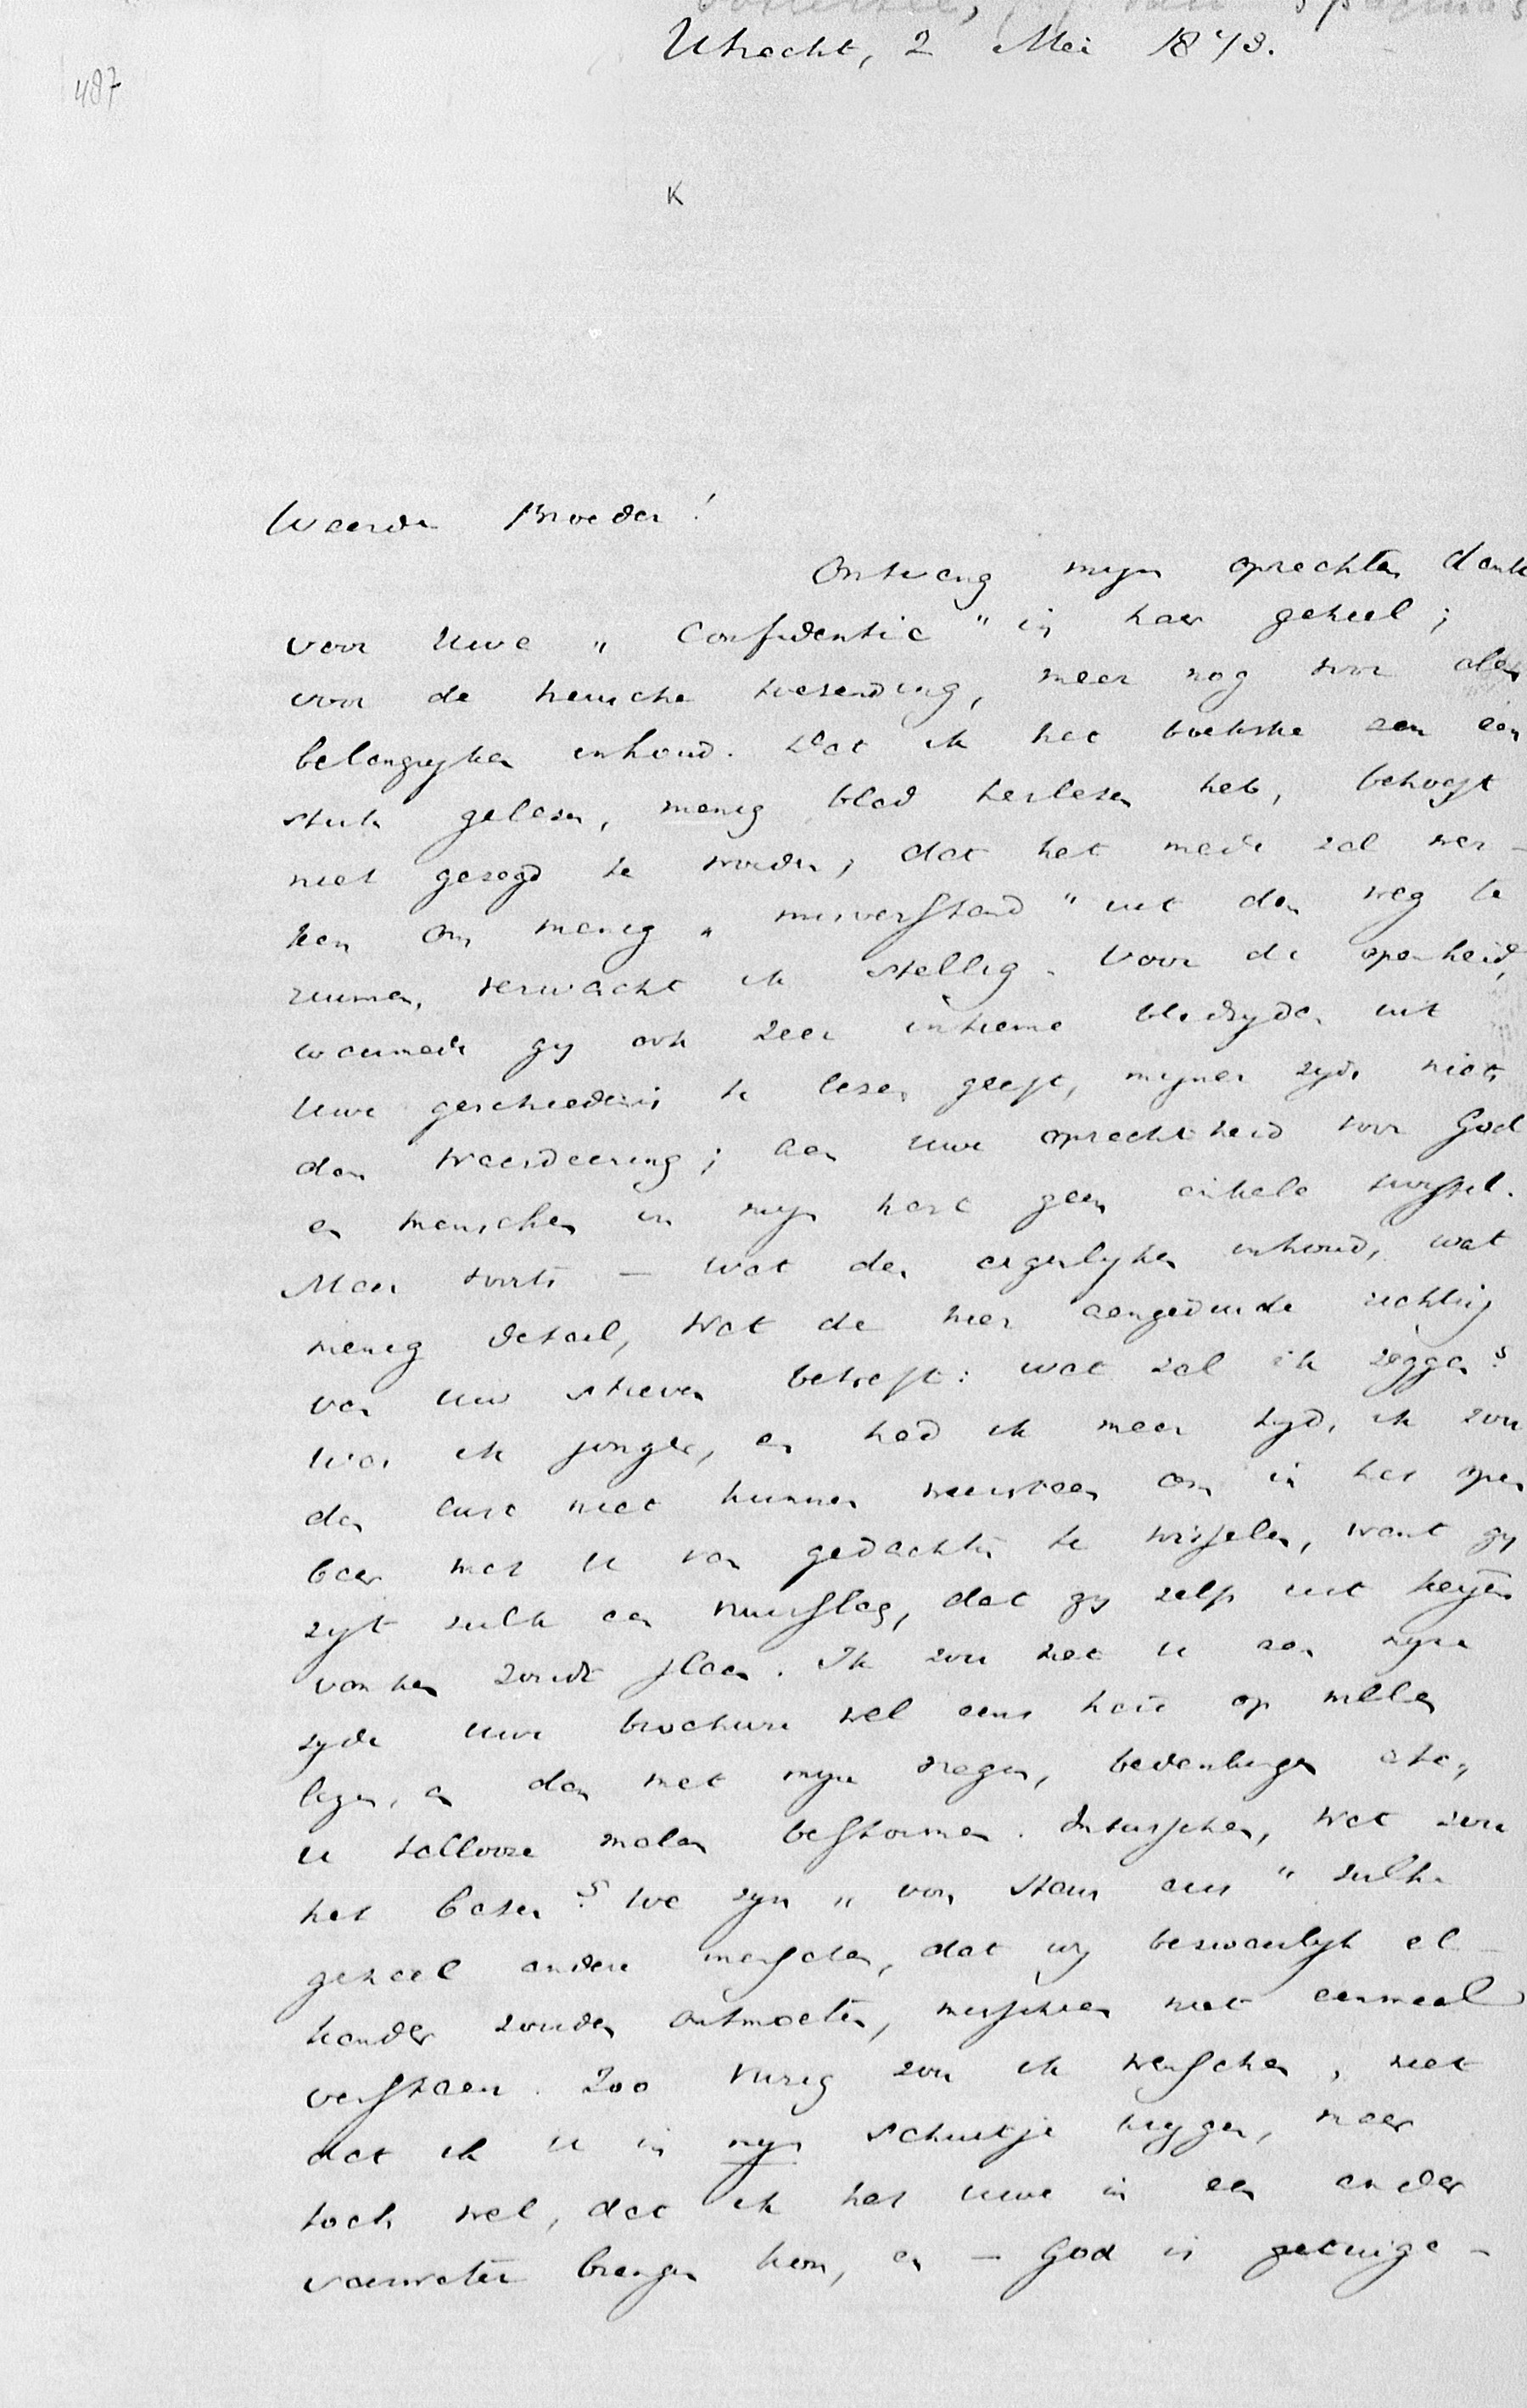 Utrecht, 2 Mei 1873.
487
K
Waarde Broeder!
Ontvang mijn oprechten dank
voor Uwe "Confidentie" in haar geheel;
voor de heusche toezending, meer nog voor den
belangrijken inhoud. Dat ik het boekske aan één
stuk gelezen, menig blad herlezen heb, behoeft
niet gezegd te worden; dat het mede zal wer-
ken om menig "misverstand" uit den weg te
ruimen, verwacht ik stellig. Voor de openheid,
waarmede gij ook zeer intieme bladzijden uit
Uwe geschiedenis te lezen geeft, mijner zijds niets
dan waardeering; aan uwe oprechtheid voor God
en menschen in mijn hart geen enkele twijfel.
Maar voorts — wat den eigenlijken inhoud, wat
menig detail, wat de hier aangeduide richting
van uw streven betreft: wat zal ik zeggen?
Was ik jonger, en had ik meer tijd, ik zou
den lust niet kunnen weerstaan om in het open
baar met U van gedachten te wisselen, want gij
zijt zulk een vuurslag, dat gij zelfs uit keijen
vonken zoudt slaan. Ik zou met U aan mijne
zijde uwe brochure wel eens hardop willen
lezen, en dan met mijne vragen, bedenkingen etc,
U tallooze malen bestormen. Intusschen, wat zou
het baten? We zijn "van Haus aus" zulke
geheel andere menschen, dat wij bezwaarlijk el-
kander zouden ontmoeten, misschien niet eenmaal
verstaan. Zoo vurig zou ik wenschen, niet
dat ik U in mijn schuitje krijgen, maar
toch wel, dat ik het uwe in een ander
vaarwater brengen kon, en — God is getuige —